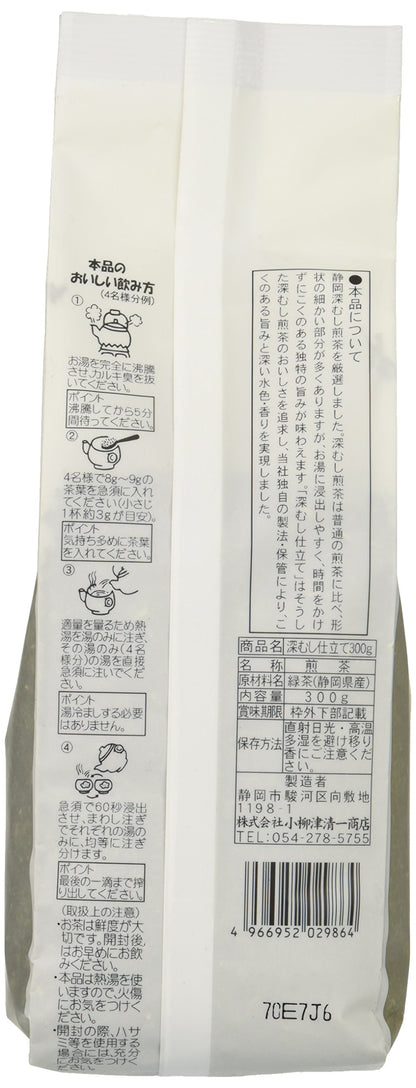 本品の
おいしい飲み方
(4名様分例)
①
お湯を完全に沸騰
させ、カルキ臭を抜
いてください。
ポイント
沸騰してから5分
間待ってください。
②
4名様で8g〜9gの
茶葉を急須に入れ
てください(小さじ
1杯約3gが目安)。
ポイント
気持ち多めに茶葉
を入れてください。
③
適量を量るため熱
湯を湯のみに注ぎ、
その湯のみ(4名
様分)の湯を直接
急須に注いでくだ
さい。
ポイント
湯冷ましする必要
はありません。
④
急須で60秒浸出
させ、まわし注ぎ
でそれぞれの湯の
みに、均等に注ぎ
分けます。
ポイント
最後の一滴まで搾
り出してください。
(取扱上の注意)
・お茶は鮮度が大
切です。開封後
はお早めにお飲
みください。
・本品は熱湯を使
いますので、火傷
にお気をつけく
ださい。
・開封の際、ハサ
ミ等を使用する
場合には、充分
にお気をつけく
ださい。
●本品について
静岡深むし煎茶を厳選しました。深むし煎茶は普通の煎茶に比べ、形
状の細かい部分が多くありますが、お湯に浸出しやすく、時間をかけ
ずにこくのある独特の旨みが味わえます。「深むし仕立て」はそうし
た深むし煎茶のおいしさを追求し、当社独自の製法・保管により、こ
くのある旨みと深い水色・香りを実現しました。
商品名 深むし仕立て300g
名称 煎茶
原材料名 緑茶(静岡県産)
内容量 300g
賞味期限 枠外下部記載
保存方法 直射日光・高温
多湿を避け移り
香にご注意くだ
さい。
製造者
静岡市駿河区向敷地
1198-1
株式会社小柳津清一商店
TEL:054-278-5755
4 966952 029864
70E7J6